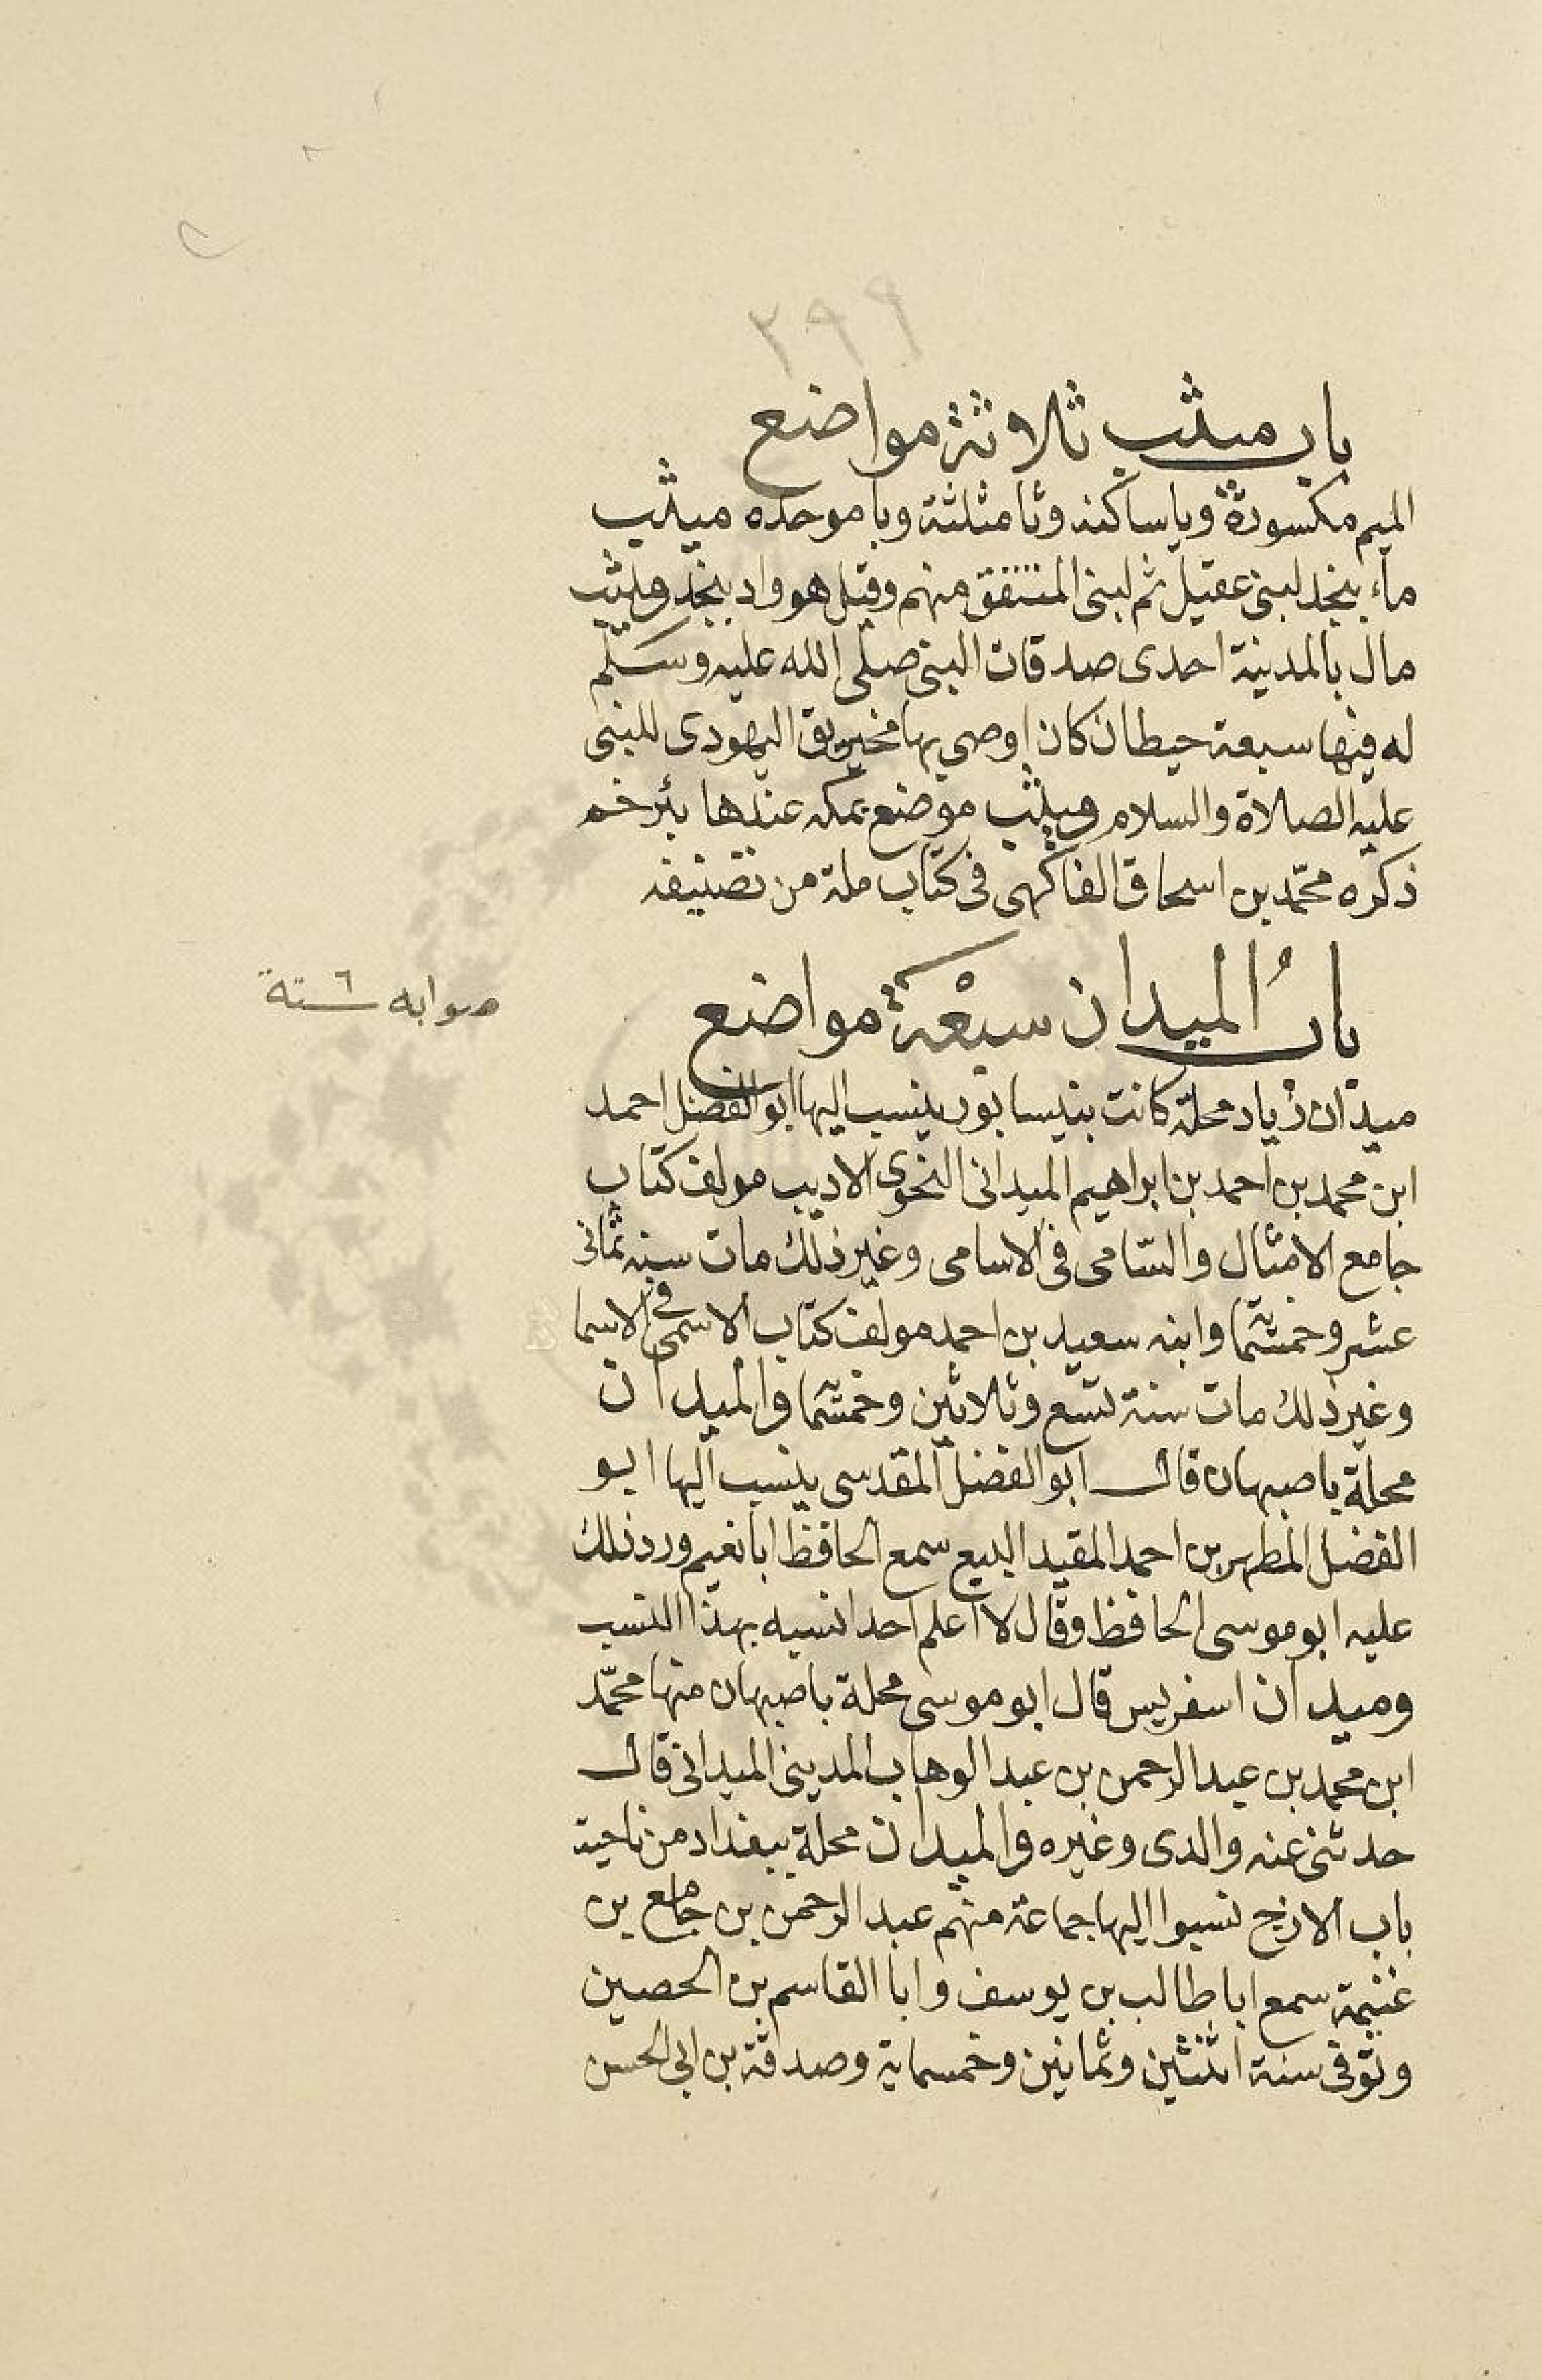 ٢٩٩
باب ميثب ثلاثة مواضع
الميم مكسورة ويا ساكنه وثا مثلثة وبا موحده ميثب
ماء بنجد لبنى عقيل ثم لبنى المنتفق منهم وقيل هو واد بنجد وميثب
مال بالمدينة احدى صدقات النبى صلى الله عليه وسلم
له فيها سبعة حيطان كان اوصى بها مخيريق اليهودى للنبى
عليه الصلاة والسلام وميثب موضع بمكه عندها بئر خم
ذكره محمّد بن اسحاق الفاكهى فى كتاب ملة من تصنيفه
بابُ الميدان سبعْة مواضع
صوابه ستة ٦
ميدان زياد محلّة كانت بنيسابور ينسب اليها ابو الفضل احمد
ابن محمد بن احمد بن ابراهيم الميدانى النحوى الاديب مولف كتاب
جامع الامثال والسّامى فى الاسامى وغير ذلك مات سنه ثمانى
عشر وخمسّما وابنه سعيد بن احمد مولف كتاب الاسمى فى الاسما
وغير ذلك مات سنة تسع وثلاثين وخمسّما والميدان
محلة باصبهان قال ابو الفضل المقدسى ينسب اليها ابو
الفضل المطهر بن احمد المقيد البيع سمع الحافظ ابا نعيم ورد ذلك
عليه ابو موسى الحافظ وقال لا اعلم احدا نسبه بهذا النسب
وميدان اسفريس قال ابو موسى محلة باصبهان منها محمّد
ابن محمد بن عبد الرحمن بن عبد الوهاب المدينى الميدانى قال
حدثنى عنه والدى وغيره والميدان محلة ببغداد من ناحية
باب الازج نسبوا اليها جماعة منهم عبد الرحمن بن جامع بن
غنيمة سمع ابا طالب بن يوسف وابا القاسم بن الحصين
وتوفى سنة اثنتين وثمانين وخمسماية وصدقة بن ابى الحسن